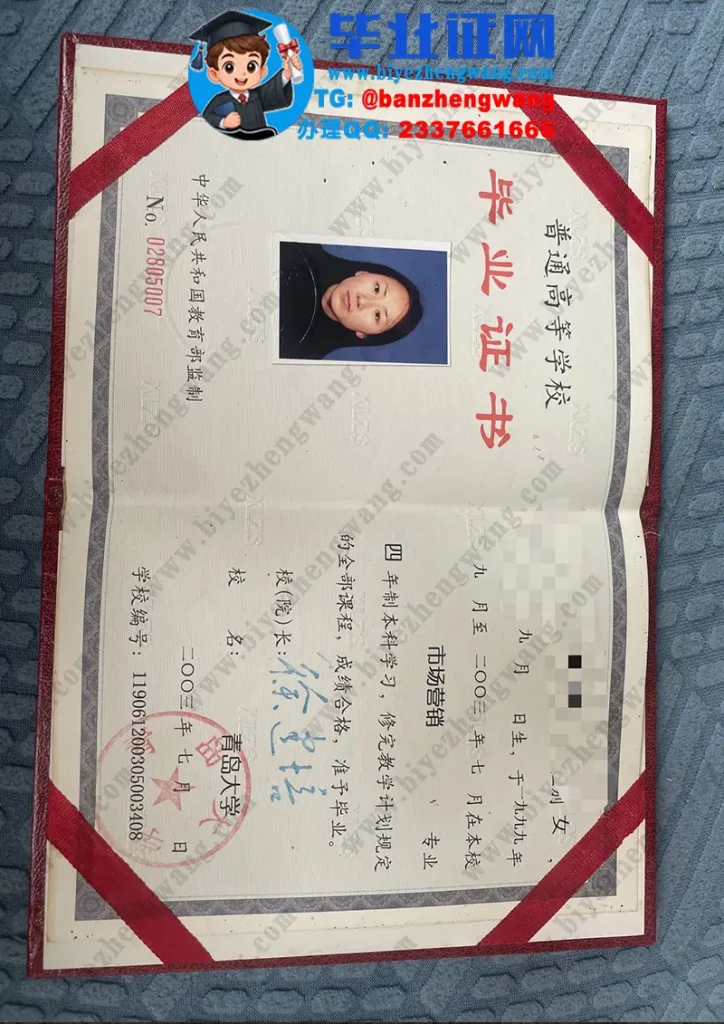 毕业证网
www.biyezhengwang.com
TG: @banzhengwang
办理QQ: 2337661666
普通高等学校
毕业证书
中华人民共和国教育部监制
No. 02805007
女，
九月 日生，于一九九九年
九月至二〇〇三年七月在本校
市场营销 专业
四年制本科学习，修完教学计划规定
的全部课程，成绩合格，准予毕业。
校(院)长：徐建培
校 名：青岛大学
二〇〇三年七月 日
学校编号：119061200305003408
www.biyezhengwang.com
XLZS